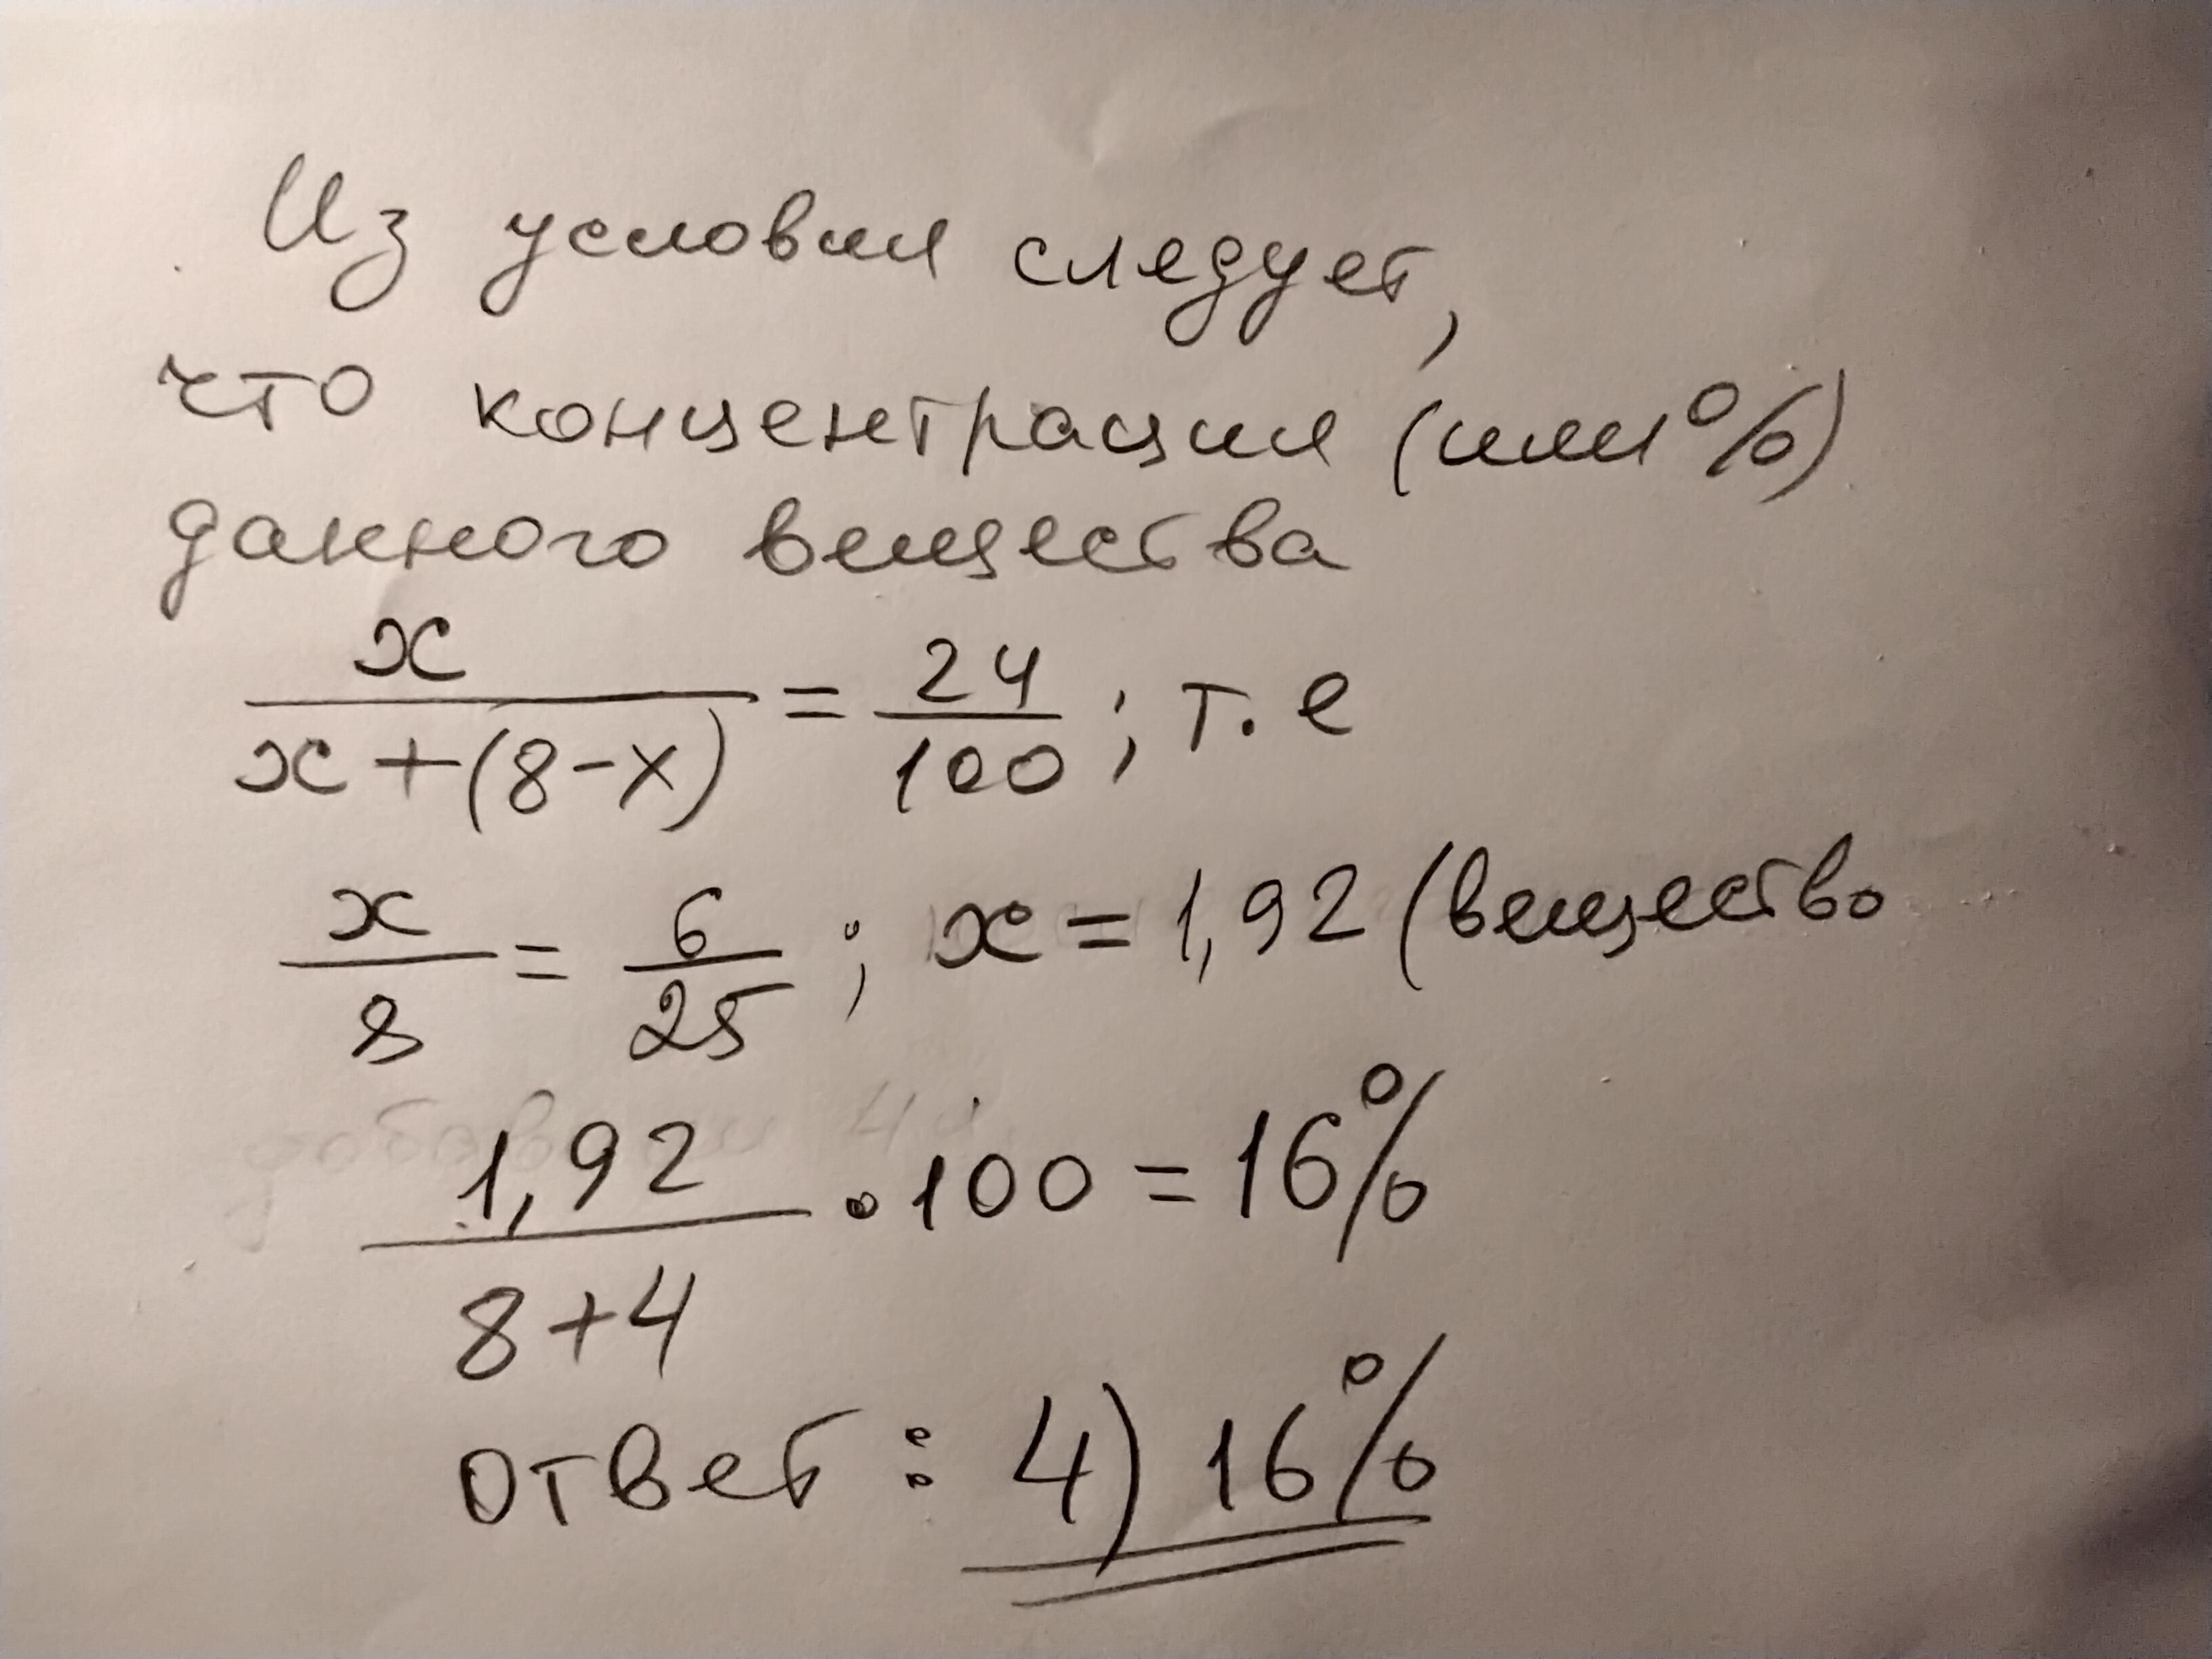 Из условия следует,
что концентрация (или %)
данного вещества
x / (x + (8 - x)) = 24 / 100 ; т. е
x / 8 = 6 / 25 ; x = 1,92 (вещество
1,92 / (8 + 4) • 100 = 16%
ответ : 4) 16%